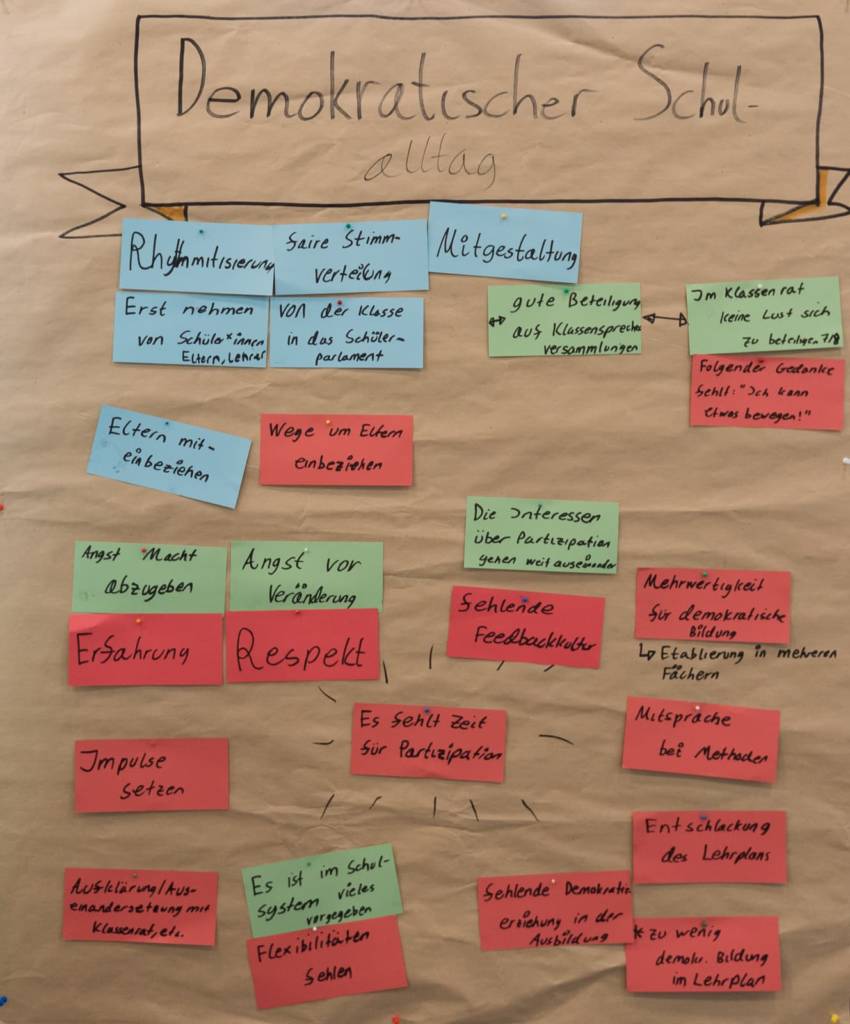 Demokratischer Schul-
alltag
Rhythmitisierung
faire Stimm-
verteilung
Mitgestaltung
Erst nehmen
von Schüler*innen
Eltern, Lehrer
von der Klasse
in das Schüler-
parlament
gute Beteiligung
auf Klassensprecher
versammlungen
Im Klassenrat
keine Lust sich
zu beteiligen 7/8
Folgender Gedanke
fehlt: "Ich kann
etwas bewegen!"
Eltern mit-
einbeziehen
Wege um Eltern
einbeziehen
Die Interessen
über Partizipation
gehen weit auseinander
Angst Macht
abzugeben
Angst vor
Veränderung
Erfahrung
Respekt
fehlende
Feedbackkultur
Mehrwertigkeit
für demokratische
Bildung
↳ Etablierung in mehreren
Fächern
Es fehlt Zeit
für Partizipation
Mitsprache
bei Methoden
Impulse
setzen
Entschlackung
des Lehrplans
Aufklärung/Aus-
einandersetzung mit
Klassenrat, etc.
Es ist im Schul-
system vieles
vorgegeben
Flexibilitäten
fehlen
fehlende Demokratie
erziehung in der
Ausbildung
* zu wenig
demokr. Bildung
im Lehrplan